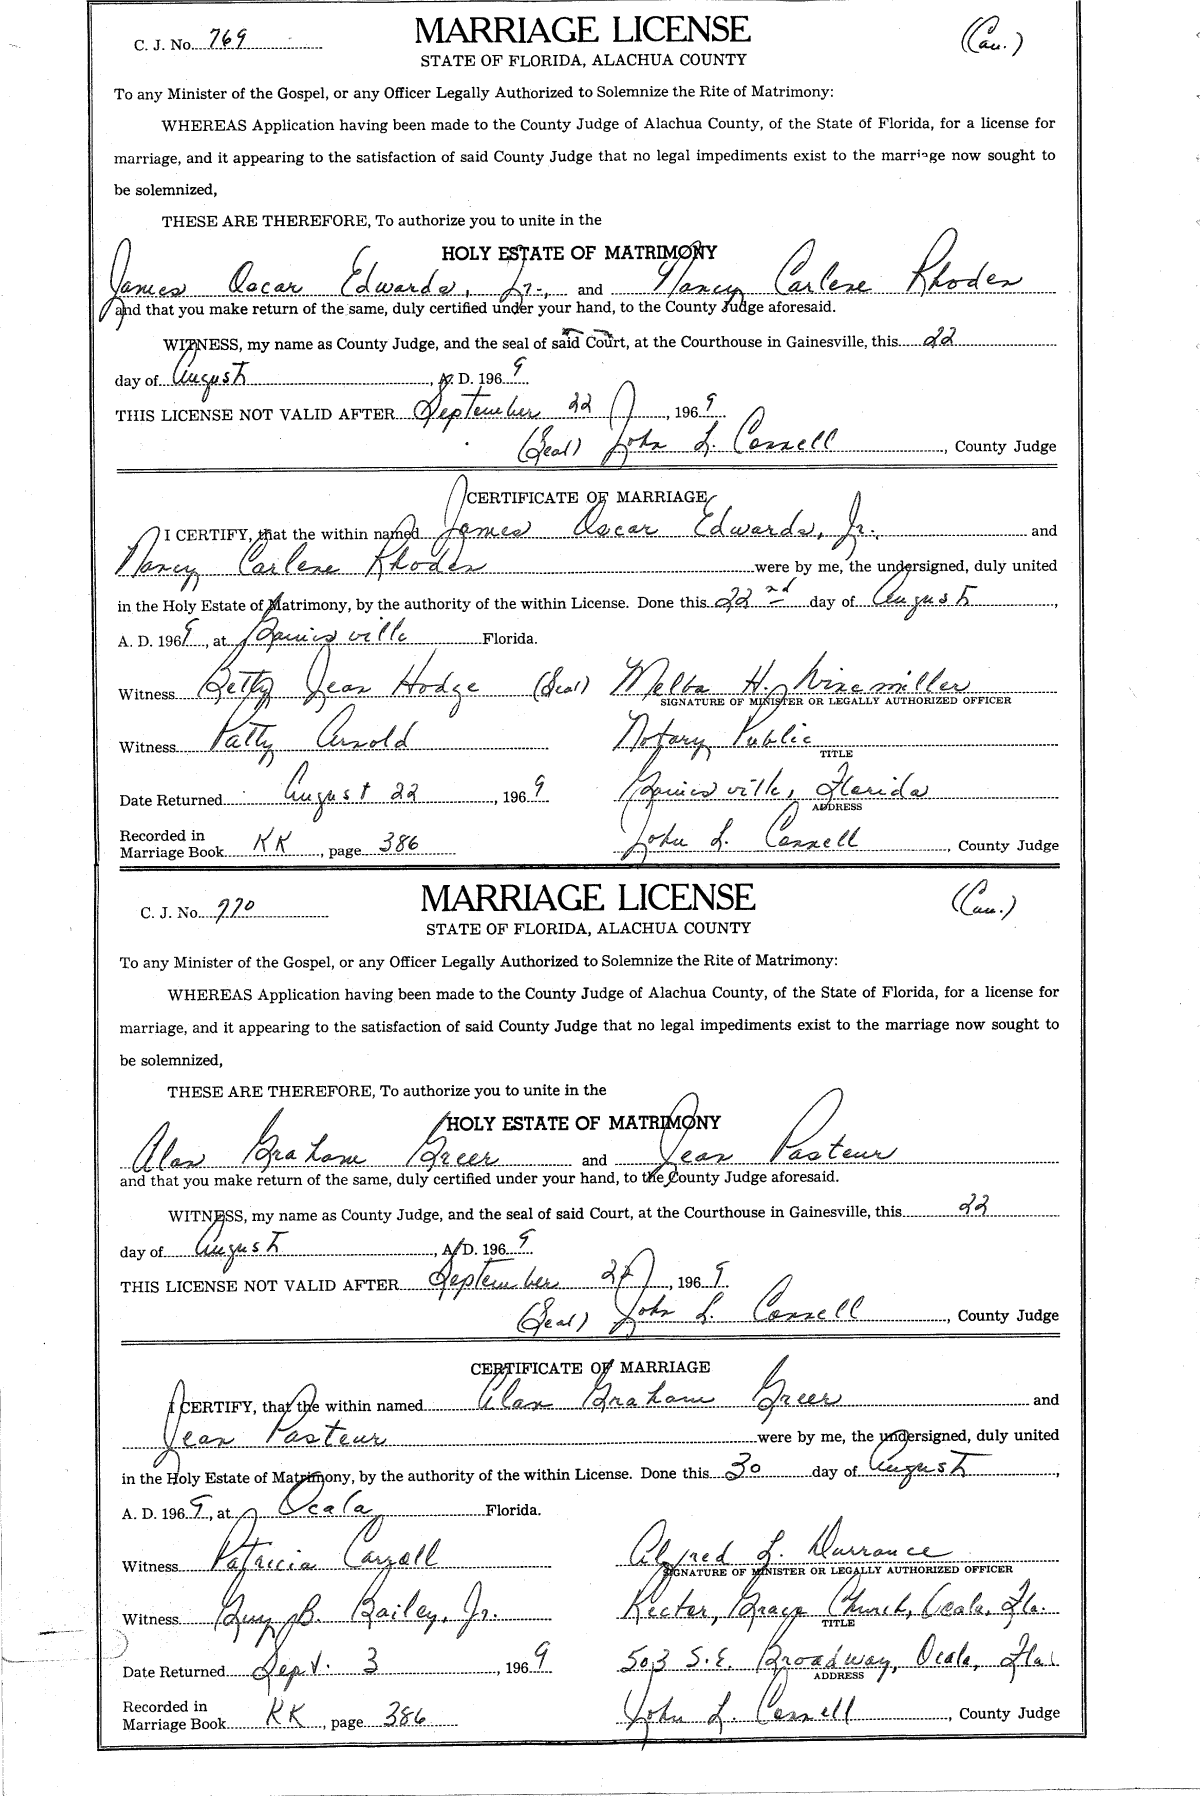 C. J. No. 769
MARRIAGE LICENSE
(Cau.)
STATE OF FLORIDA, ALACHUA COUNTY
To any Minister of the Gospel, or any Officer Legally Authorized to Solemnize the Rite of Matrimony:
WHEREAS Application having been made to the County Judge of Alachua County, of the State of Florida, for a license for
marriage, and it appearing to the satisfaction of said County Judge that no legal impediments exist to the marriage now sought to
be solemnized,
THESE ARE THEREFORE, To authorize you to unite in the
HOLY ESTATE OF MATRIMONY
James Oscar Edwards, Jr., and Nancy Carlene Rhoden
and that you make return of the same, duly certified under your hand, to the County Judge aforesaid.
WITNESS, my name as County Judge, and the seal of said Court, at the Courthouse in Gainesville, this 22
day of August, A. D. 1969
THIS LICENSE NOT VALID AFTER September 22, 1969
(Seal) John L. Connell, County Judge
CERTIFICATE OF MARRIAGE
I CERTIFY, that the within named James Oscar Edwards, Jr., and
Nancy Carlene Rhoden were by me, the undersigned, duly united
in the Holy Estate of Matrimony, by the authority of the within License. Done this 22nd day of August,
A. D. 1969, at Gainesville Florida.
Witness Betty Jean Hodge (Seal) Melba H. Winemiller
SIGNATURE OF MINISTER OR LEGALLY AUTHORIZED OFFICER
Witness Patty Arnold Notary Public
TITLE
Date Returned August 22, 1969 Gainesville, Florida
ADDRESS
Recorded in
Marriage Book KK, page 386 John L. Connell, County Judge
C. J. No. 770
MARRIAGE LICENSE
(Cau.)
STATE OF FLORIDA, ALACHUA COUNTY
To any Minister of the Gospel, or any Officer Legally Authorized to Solemnize the Rite of Matrimony:
WHEREAS Application having been made to the County Judge of Alachua County, of the State of Florida, for a license for
marriage, and it appearing to the satisfaction of said County Judge that no legal impediments exist to the marriage now sought to
be solemnized,
THESE ARE THEREFORE, To authorize you to unite in the
HOLY ESTATE OF MATRIMONY
Alan Graham Greer and Jean Pasteur
and that you make return of the same, duly certified under your hand, to the County Judge aforesaid.
WITNESS, my name as County Judge, and the seal of said Court, at the Courthouse in Gainesville, this 22
day of August, A. D. 1969
THIS LICENSE NOT VALID AFTER September 22, 1969
(Seal) John L. Connell, County Judge
CERTIFICATE OF MARRIAGE
I CERTIFY, that the within named Alan Graham Greer and
Jean Pasteur were by me, the undersigned, duly united
in the Holy Estate of Matrimony, by the authority of the within License. Done this 30 day of August,
A. D. 1969, at Ocala Florida.
Witness Patricia Carroll Alfred L. Durrance
SIGNATURE OF MINISTER OR LEGALLY AUTHORIZED OFFICER
Witness Guy B. Bailey, Jr. Rector, Grace Church, Ocala, Fla.
TITLE
Date Returned Sept. 3, 1969 503 S.E. Broadway, Ocala, Fla.
ADDRESS
Recorded in
Marriage Book KK, page 386 John L. Connell, County Judge